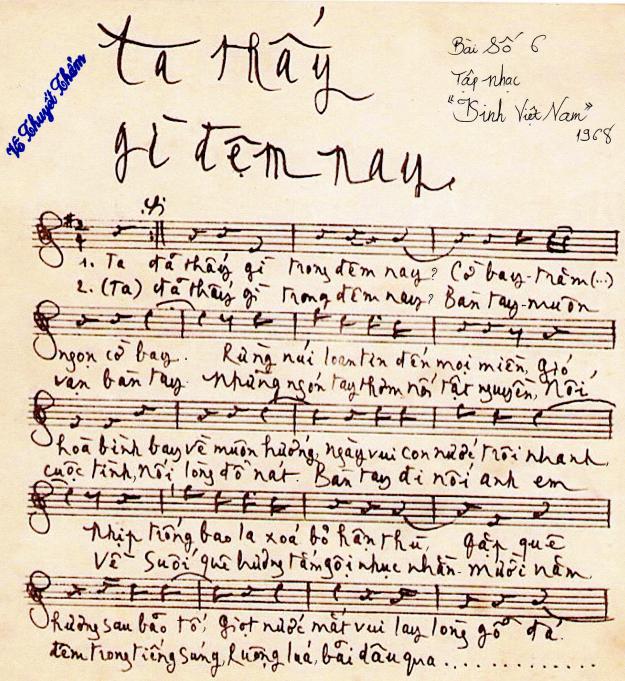 Ta thấy
gì đêm nay.
Bài Số 6
Tập nhạc
"Kinh Việt Nam"
1968
Võ Thuyết Thảm
1. Ta đã thấy gì trong đêm nay? Cờ bay-trăm (...)
2. (Ta) đã thấy gì trong đêm nay? Bàn tay-muôn
ngọn cờ bay. Rừng núi loan tin đến mọi miền, gió
vạn bàn tay. Những ngón tay thơm nối tật nguyền, Nối
hoà bình bay về muôn hướng, ngày vui con nước trôi nhanh,
cuộc tình, nối lòng đổ nát. Bàn tay đi nối anh em
Nhịp trống bao la xoá bỏ hận thù, gặp quê
Về suối quê hương tắm gội nhục nhằn. Mười năm,
hương sau bão tố, giọt nước mắt vui lay lòng gỗ đá.
đêm trong tiếng súng, Ruộng lúa, bãi dâu qua . . . . . . . . . . . . . .